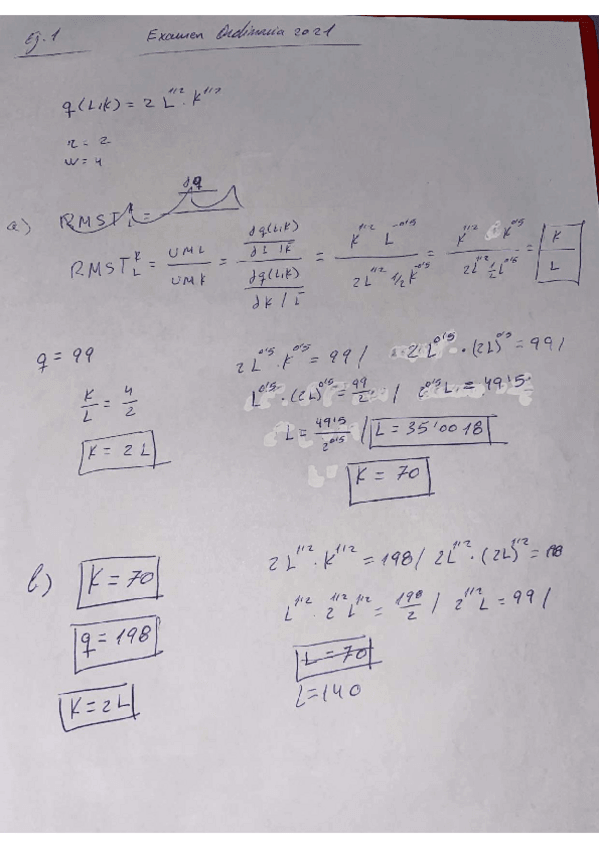 Ej. 1 Examen Ordinaria 2021
q(L,K) = 2 L^1/2 · K^1/2
r = 2
w = 4
a) RMST^K_L = ∂q
RMST^K_L = UML / UMK = (∂q(L,K) / ∂L |K) / (∂q(L,K) / ∂K / L) = K^1/2 L^-0'5 / 2L^1/2 1/2 K^-0'5 = K^1/2 K^0'5 / 2L^1/2 1/2 L^0'5 = K / L
q = 99 2L^0'5 · K^0'5 = 99 / 2L^0'5 · (2L)^0'5 = 99 /
K / L = 4 / 2 L^0'5 · (2L)^0'5 = 99 / 2 / 2^0'5 L = 49'5
K = 2L L = 49'5 / 2^0'5 / L = 35'0018
K = 70
b) K = 70 2L^1/2 · K^1/2 = 198 / 2L^1/2 · (2L)^1/2 = 198
q = 198 L^1/2 · 2^1/2 L^1/2 = 198 / 2 / 2^1/2 L = 99 /
K = 2L L = 70
L = 140